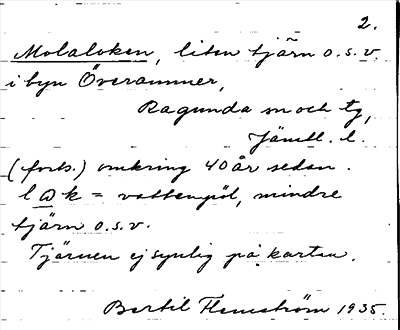 2.
Molaloken, liten tjärn o.s.v.
i byn Överammer,
Ragunda sn och tg,
Jämtl. l.
(forts.) omkring 40 år sedan.
l a k = vattenpöl, mindre
tjärn o.s.v.
Tjärnen ej synlig på kartan.
Bertil Flemström 1935.